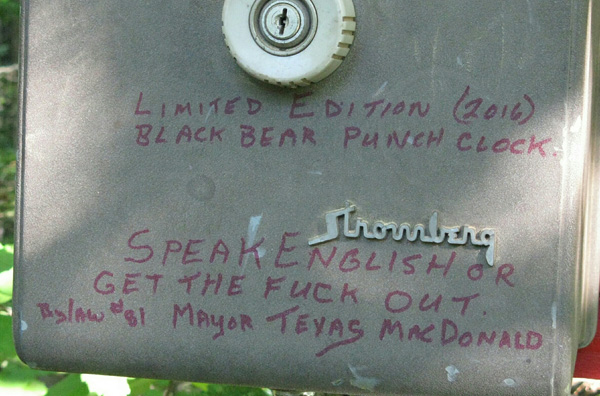 LIMITED EDITION (2016)
BLACK BEAR PUNCH CLOCK.
Stromberg
SPEAK ENGLISH OR
GET THE FUCK OUT.
Bylaw #81 MAYOR TEXAS MACDONALD